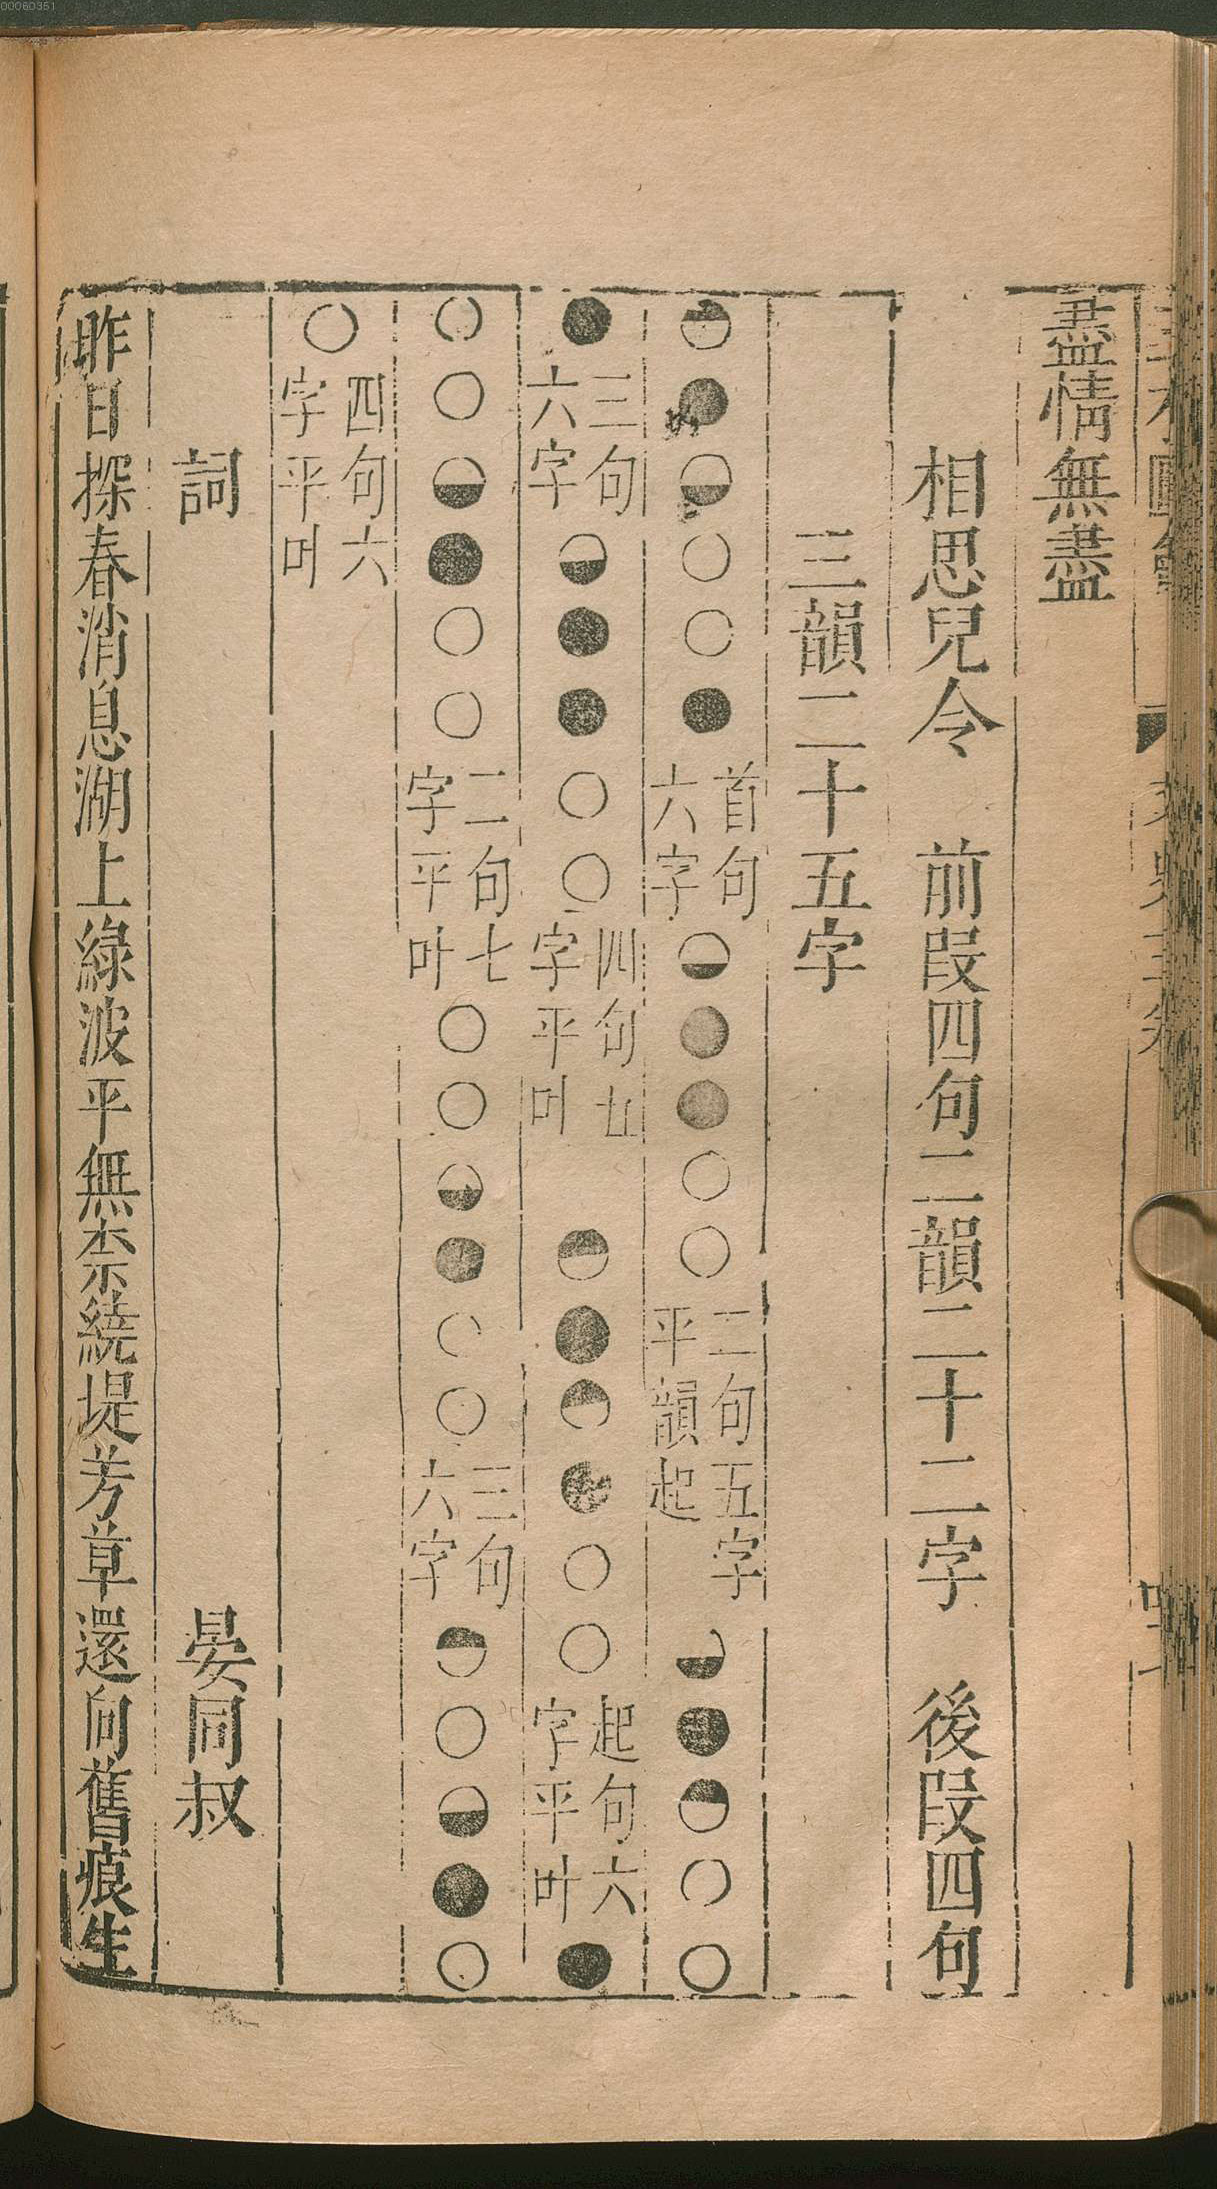 00060351
盡情無盡
相思兒令　前段四句二韻二十二字　後段四句
三韻二十五字
◓●◒○○●首句六字◒●●○○二句五字平韻起◒●◓○○
●三句六字◒●●○○四句五字平叶◓●◓●○○起句六字平叶●
○○◒●○○二句七字平叶○○◒●○○三句六字◓○◒●○
○四句六字平叶
詞　晏同叔
昨日探春消息湖上綠波平無柰繞堤芳草還向舊痕生